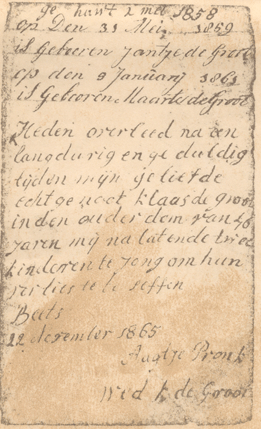 ge hawt 2 mei 1858
op Den 31 Mei 1859
is Geboren Jantje de Groot
op den 9 Januarij 1861
is Geboren Maarte de Groot
Heden overleed na een
langdurig en ge duldig
lijden mijn geliefde
echtgenoot Klaas de groot
in den ouderdom van 46
jaren mij na latende twee
kinderen te jong om hun
verlies te be seffen
Beets
22 december 1865
Aagtje Pronk
Wed k de Groot